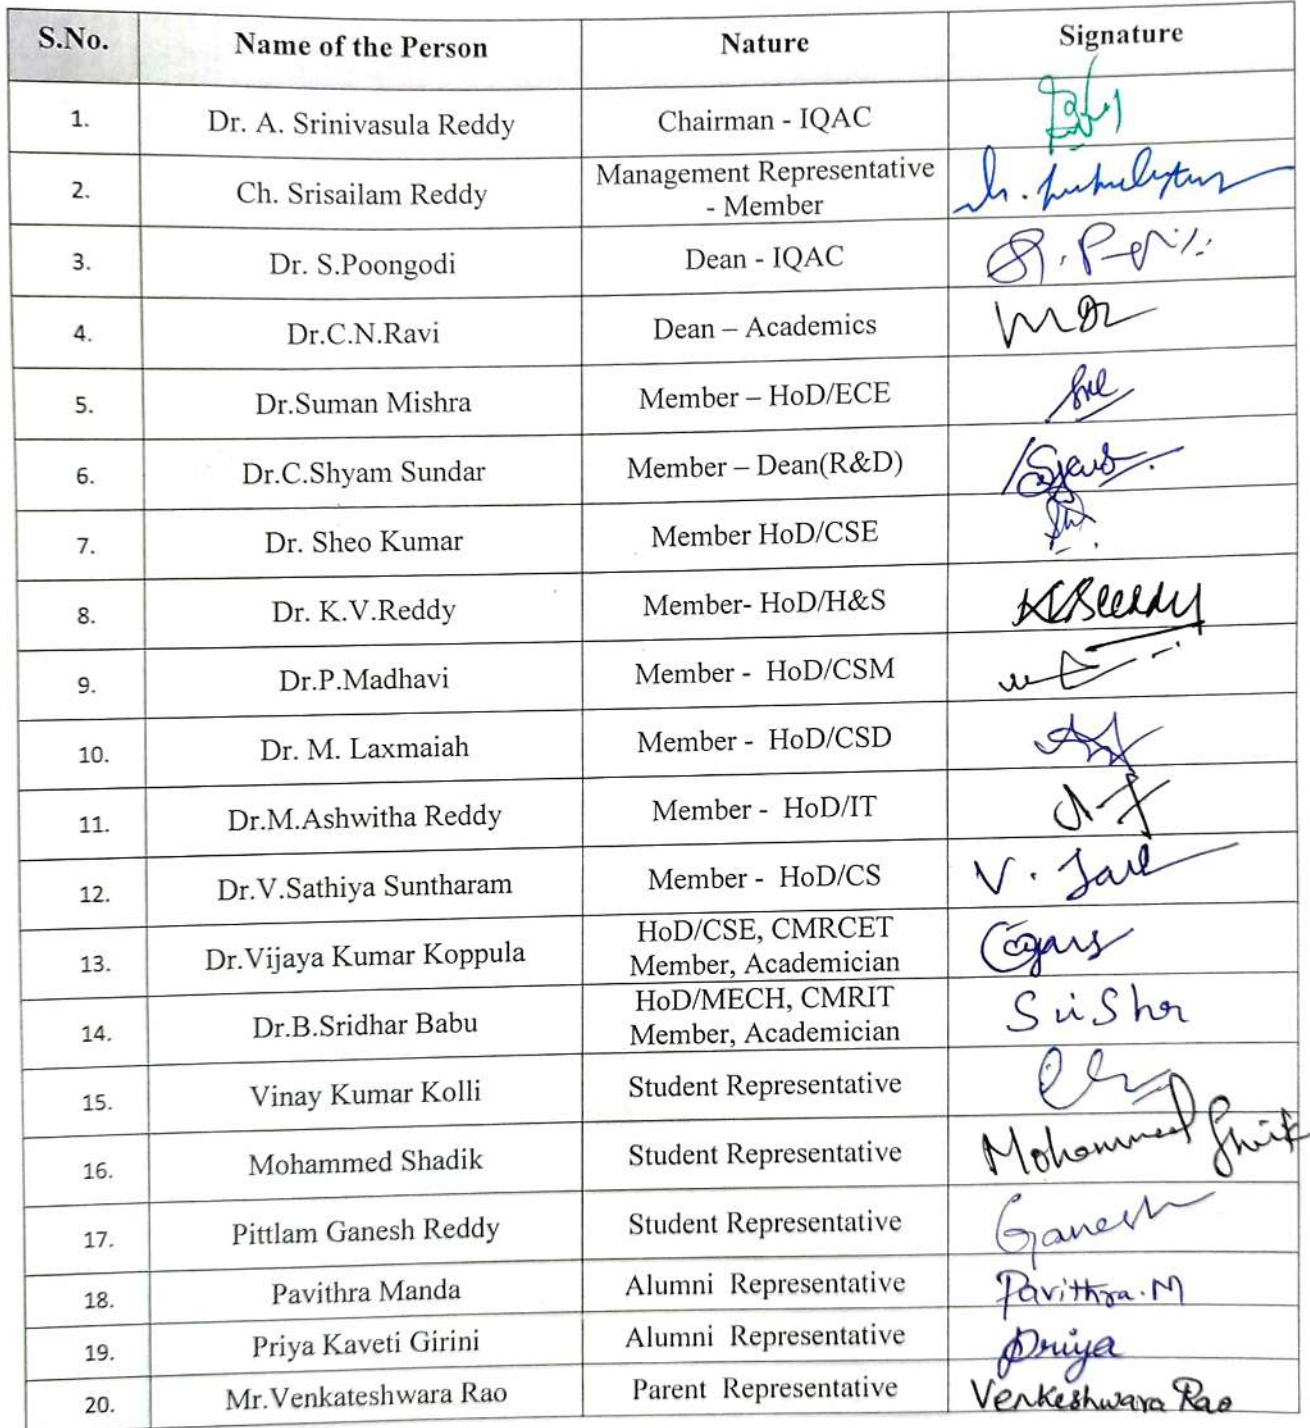 S.No. Name of the Person Nature Signature
1. Dr. A. Srinivasula Reddy Chairman - IQAC
2. Ch. Srisailam Reddy Management Representative
- Member
3. Dr. S.Poongodi Dean - IQAC
4. Dr.C.N.Ravi Dean – Academics
5. Dr.Suman Mishra Member – HoD/ECE
6. Dr.C.Shyam Sundar Member – Dean(R&D)
7. Dr. Sheo Kumar Member HoD/CSE
8. Dr. K.V.Reddy Member- HoD/H&S
9. Dr.P.Madhavi Member - HoD/CSM
10. Dr. M. Laxmaiah Member - HoD/CSD
11. Dr.M.Ashwitha Reddy Member - HoD/IT
12. Dr.V.Sathiya Suntharam Member - HoD/CS V.
13. Dr.Vijaya Kumar Koppula HoD/CSE, CMRCET
Member, Academician
14. Dr.B.Sridhar Babu HoD/MECH, CMRIT
Member, Academician
15. Vinay Kumar Kolli Student Representative
16. Mohammed Shadik Student Representative Mohammed
17. Pittlam Ganesh Reddy Student Representative Ganesh
18. Pavithra Manda Alumni Representative Pavithra.M
19. Priya Kaveti Girini Alumni Representative Priya
20. Mr.Venkateshwara Rao Parent Representative Venkeshwara Rao